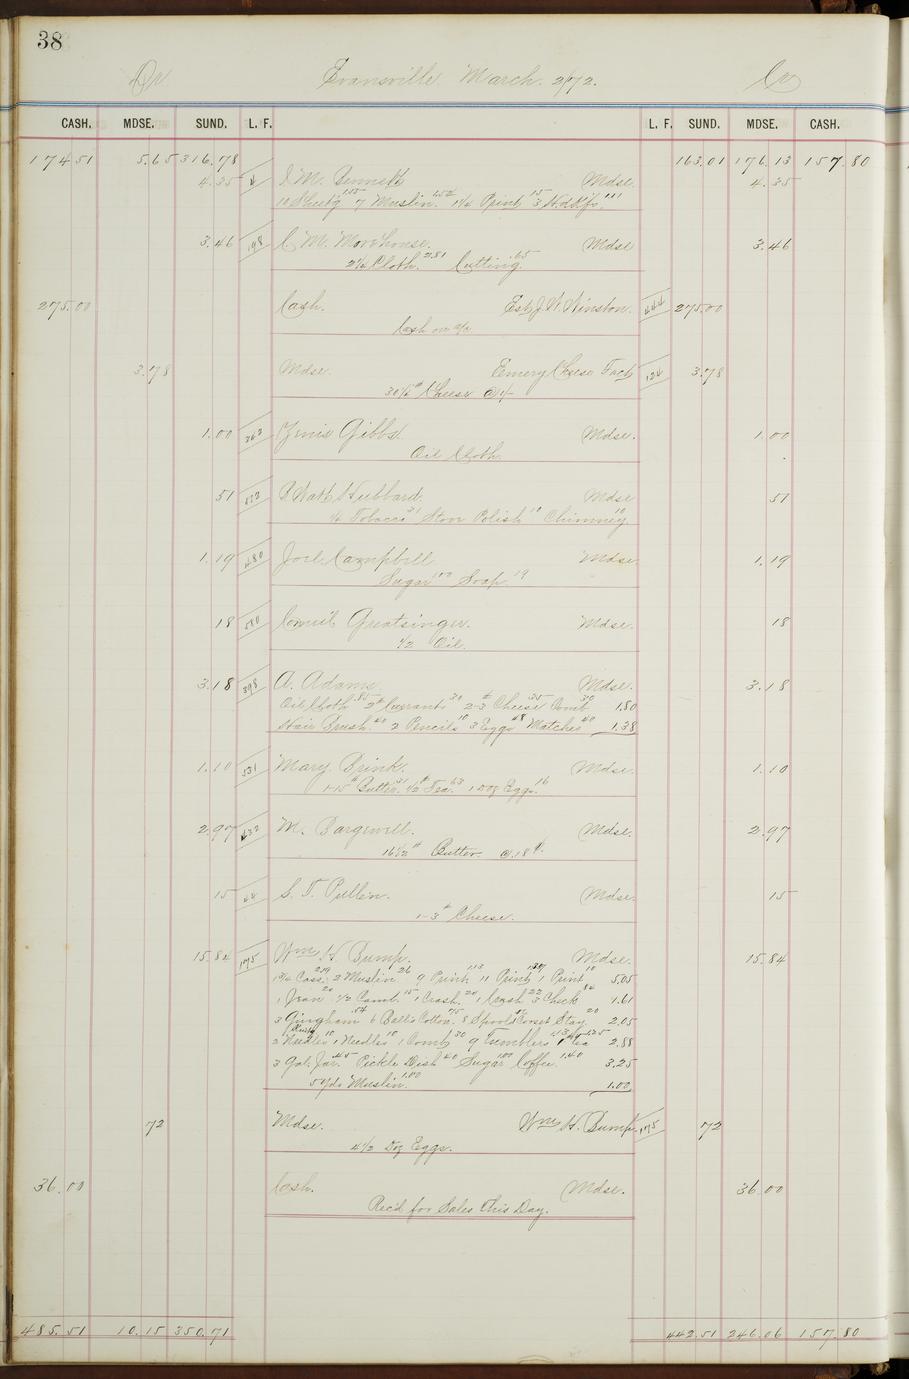 38
Dr Evansville March 2/72. Cr
CASH. MDSE. SUND. L. F. L. F. SUND. MDSE. CASH.
174 51 5.65 316.78 163.01 176.13 157.80
4.35 4 M. Bennett Mdse. 4.35
7 Muslin Print 15 3 Hdkfs
3.46 198 C M. Morehouse. Mdse 3.46
2¼ Cloth 2.81 Cutting .65
275.00 Cash. Est J. W. Winston. 444 275.00
Cash on a/c
3.78 Mdse. Emery Cheese Fact 124 3.78
Cheese
1.00 362 Gibbs Mdse. 1.00
Oil Cloth
51 Hubbard. Mdse 51
Tobacco 31 Stove Polish 10 Chimney 10
1.19 480 Joel Campbell Mdse 1.19
Sugar 1.00 Soap. 19
18 Greatsinger. Mdse. 18
1/2 Oil.
3.18 398 A. Adams Mdse. 3.18
Oil Cloth .85 2# Currants 30 2-3# Cheese 35 Comb 30 1.80
Hair Brush. 40 2 Pencils 10 3 Eggs 48 Matches 40 1.38
1.10 531 Mary. Brink. Mdse. 1.10
1-15# Butter. 31 1/2# Tea. 63 1 Doz Eggs. 16
2.97 432 M. Mdse. 2.97
16½# Butter. @ .18¢.
15 44 S. T. Pullin. Mdse. 15
1-3# Cheese.
15.84 175 Wm H. Bump. Mdse. 15.84
2 Muslin 26 9 Print 1.13 11 Print Print 10 5.05
1 Jean 20 1/2 Comb 15 1 Crash. 20 1 Crash 22 3 Check 84 1.61
3 Gingham 54 6 Balls Cotton. 75 8 Spools Corset Stay. 20 2.05
2 Needles 10 1 Needles 10 1 Comb 30 9 Tumblers 1# Tea 2.88
3 Gal. Jar. 45 Pickle Dish 40 Sugar 1.00 Coffee. 1.40 3.25
5 yds Muslin. 1.00 1.00
72 Mdse. Wm H. Bump. 175 72
4½ Doz Eggs.
36.00 Cash. Mdse. 36.00
Rec'd for Sales This Day.
485.51 10.15 350.71 442.51 246.06 157.80